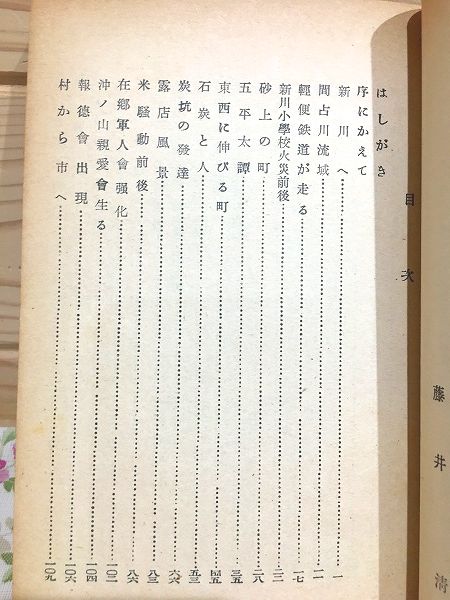 藤井清
目次
はしがき
序にかえて
新川へ……一
間占川流域……一一
輕便鉄道が走る……一七
新川小學校火災前後……二三
砂上の町……二八
五平太譚……三五
東西に伸びる町……四五
石炭と人……五三
炭坑の發達……六六
露店風景……八三
米騒動前後……八六
在郷軍人會强化……一〇二
沖ノ山親愛會生る……一〇四
報德會出現……一〇六
村から市へ……一〇九